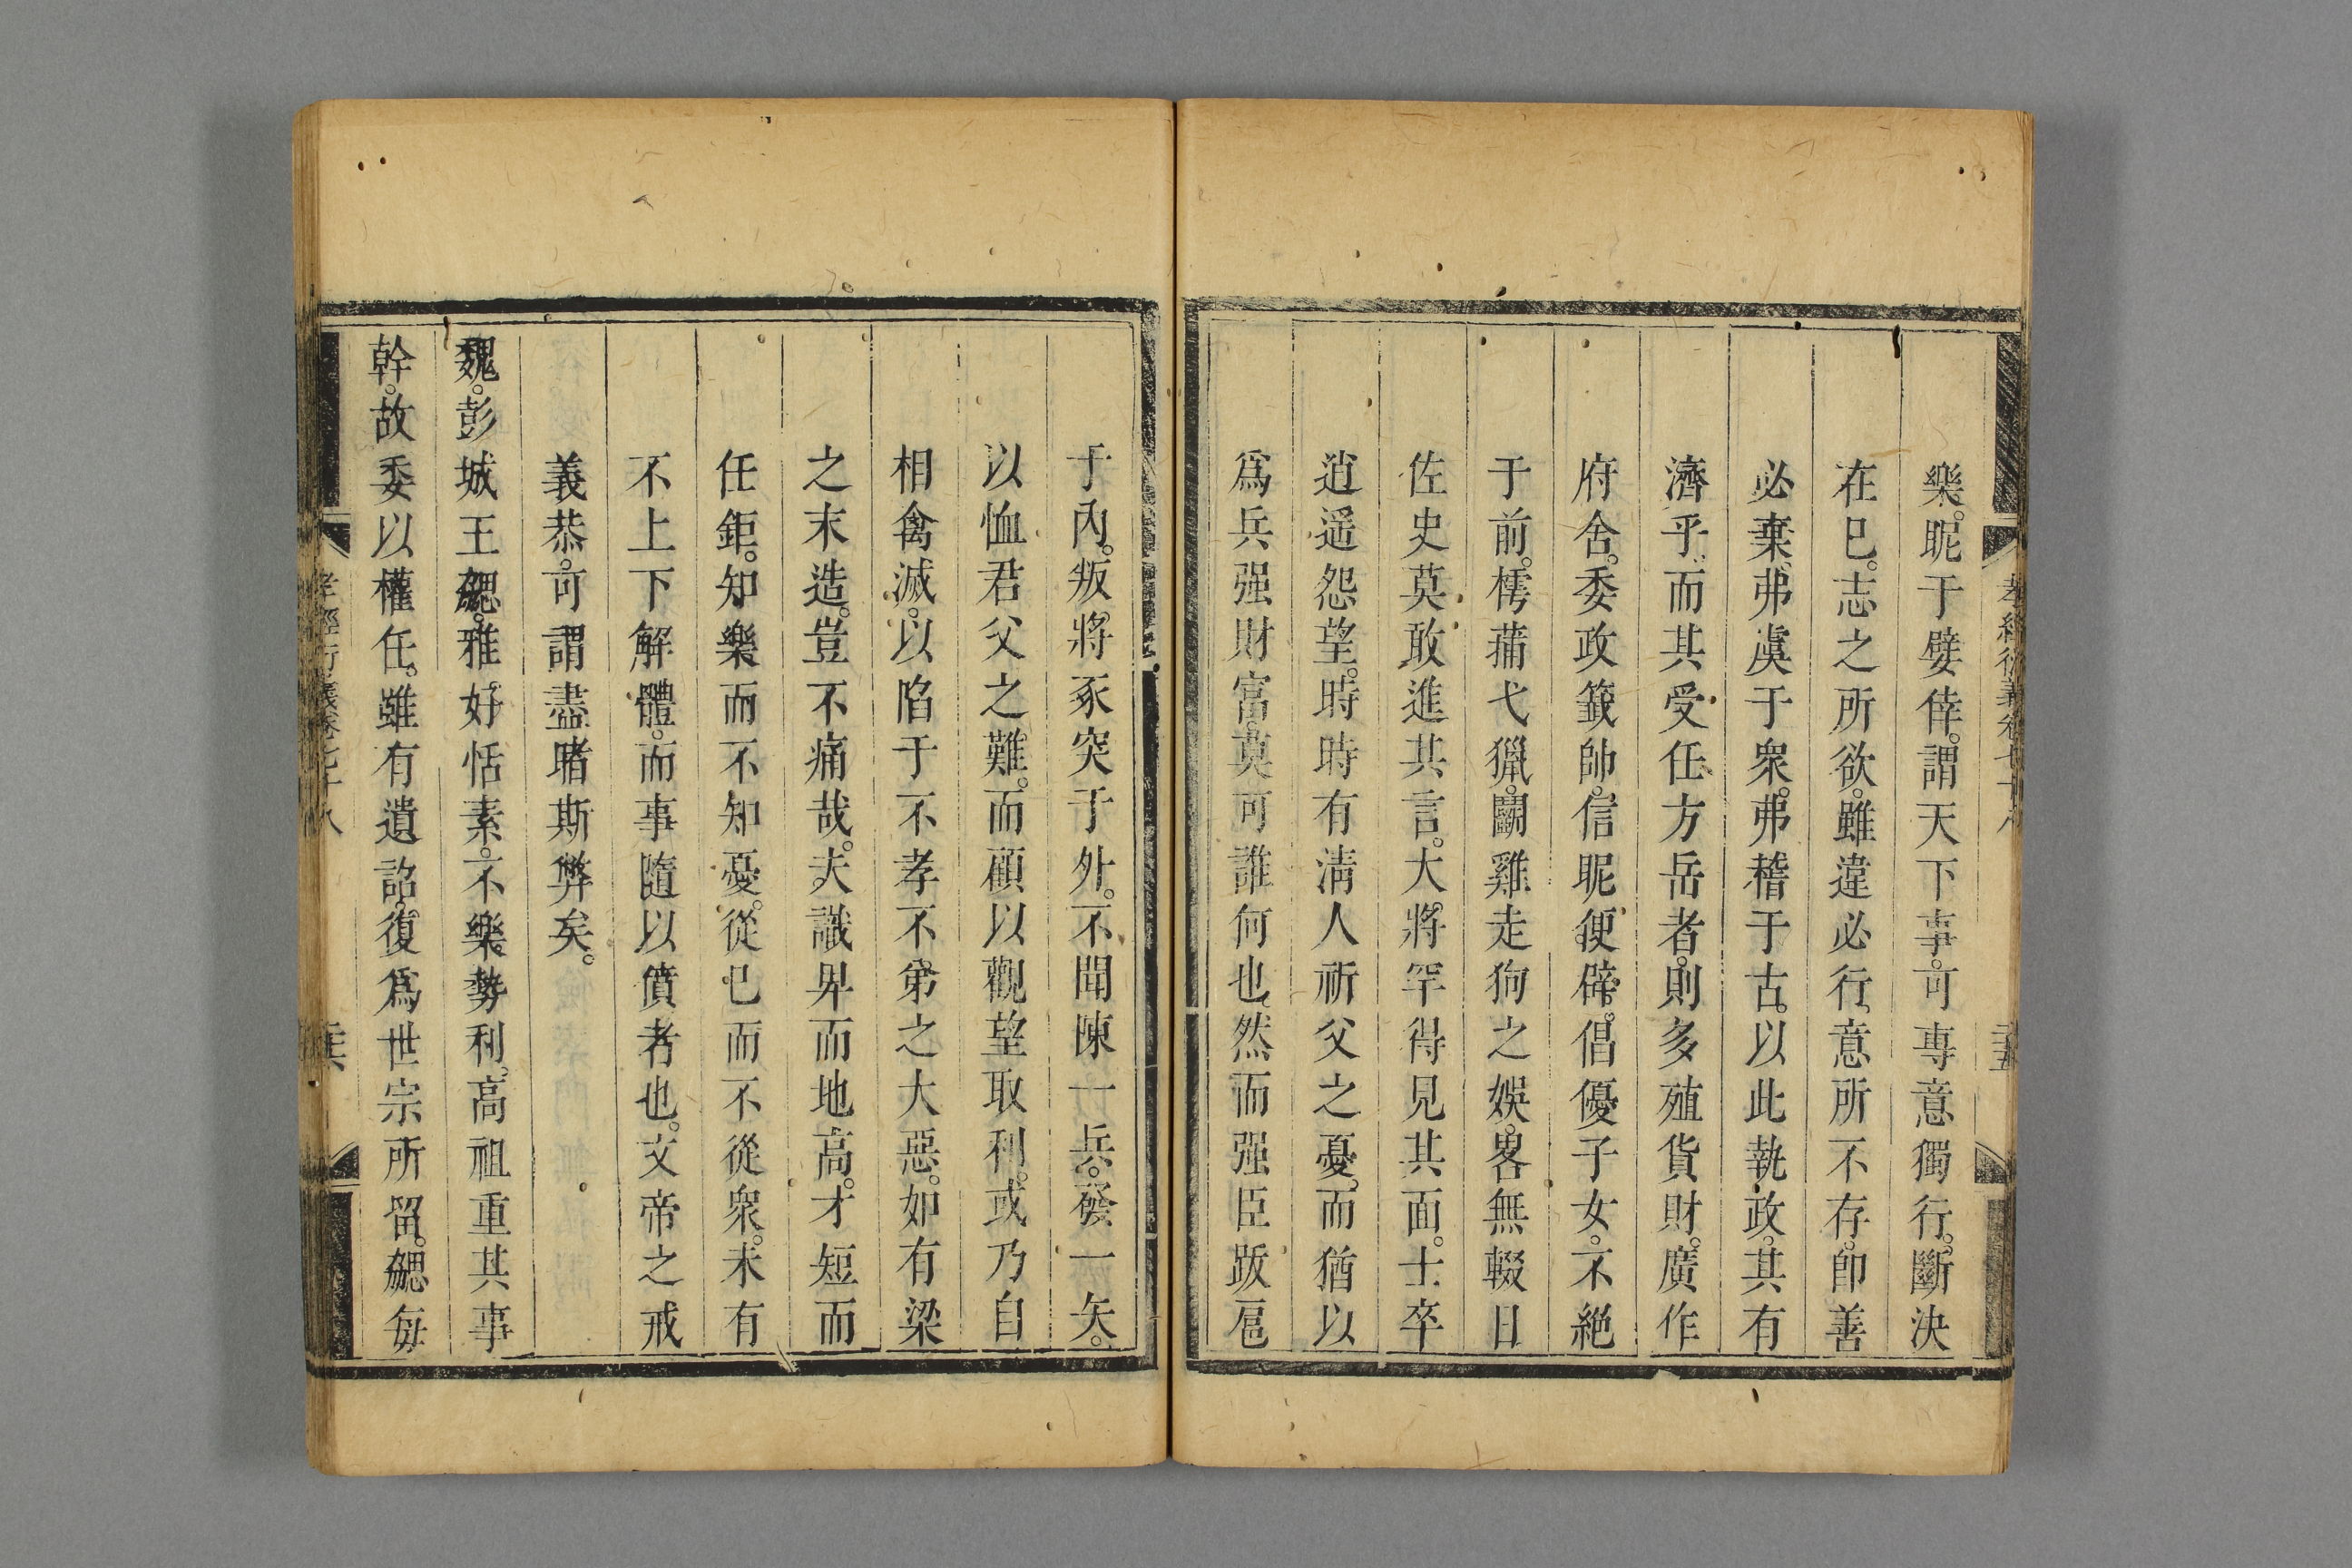 孝經衍義卷七十八
樂。昵于嬖倖。謂天下事。可專意獨行。斷決
在已。志之所欲。雖違必行、意所不存。卽善
必棄、弗虞于衆。弗稽于古。以此執政。其有
濟乎、而其受任方岳者。則多殖貨財。廣作
府舍。委政籖帥。信昵便辟。倡優子女。不絕
于前。樗蒲弋獵。鬬雞走狗之娛。畧無輟日
佐史莫敢進其言。大將罕得見其面。士卒
逍遥怨望。時時有淸人祈父之憂。而猶以
爲兵强財富。莫可誰何也、然而强臣跋扈
于內。叛將豕突于外。不聞陳一兵。發一矢。
以恤君父之難。而顧以觀望取利。或乃自
相禽滅。以陷于不孝不弟之大惡。如有梁
之末造。豈不痛哉。夫識卑而地高。才短而
任鉅。知樂而不知憂。從已而不從衆。未有
不上下解體。而事隨以僨者也。文帝之戒
義恭。可謂盡睹斯弊矣。
魏。彭城王勰。雅好恬素。不樂勢利。高祖重其事
幹。故委以權任。雖有遺詔。復爲世宗所留。勰每
孝經衍義卷七十八